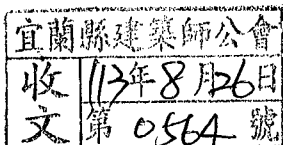 宜蘭縣建築師公會
收文 113年8月26日
第0564號